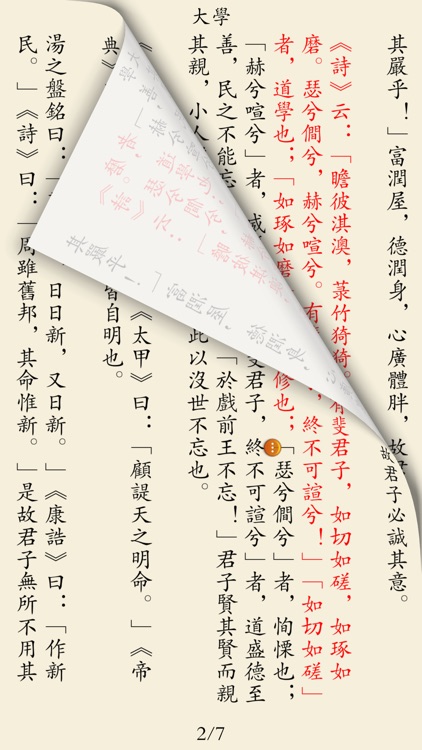 大學
其嚴乎！」富潤屋，德潤身，心廣體胖，故君子必誠其意。
《詩》云：「瞻彼淇澳，菉竹猗猗。有斐君子，如切如磋，如琢如
磨。瑟兮僩兮，赫兮喧兮。有 ，終不可諠兮！」「如切如磋」
者，道學也；「如琢如磨 修也；「瑟兮僩兮」者，恂慄也；
「赫兮喧兮」者，威 斐君子，終不可諠兮」者，道盛德至
善，民之不能忘 「於戲前王不忘！」君子賢其賢而親
其親，小人 此以沒世不忘也。
《太甲》曰：「顧諟天之明命。」《帝
典》 皆自明也。
湯之盤銘曰： 日日新，又日新。」《康誥》曰：「作新
民。」《詩》曰：「周雖舊邦，其命惟新。」是故君子無所不用其
2/7